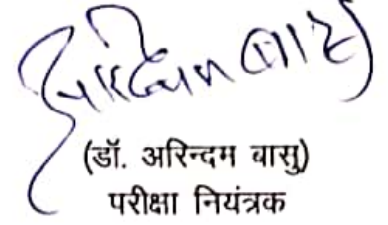 अरिन्दम बासु
(डॉ. अरिन्दम बासु)
परीक्षा नियंत्रक